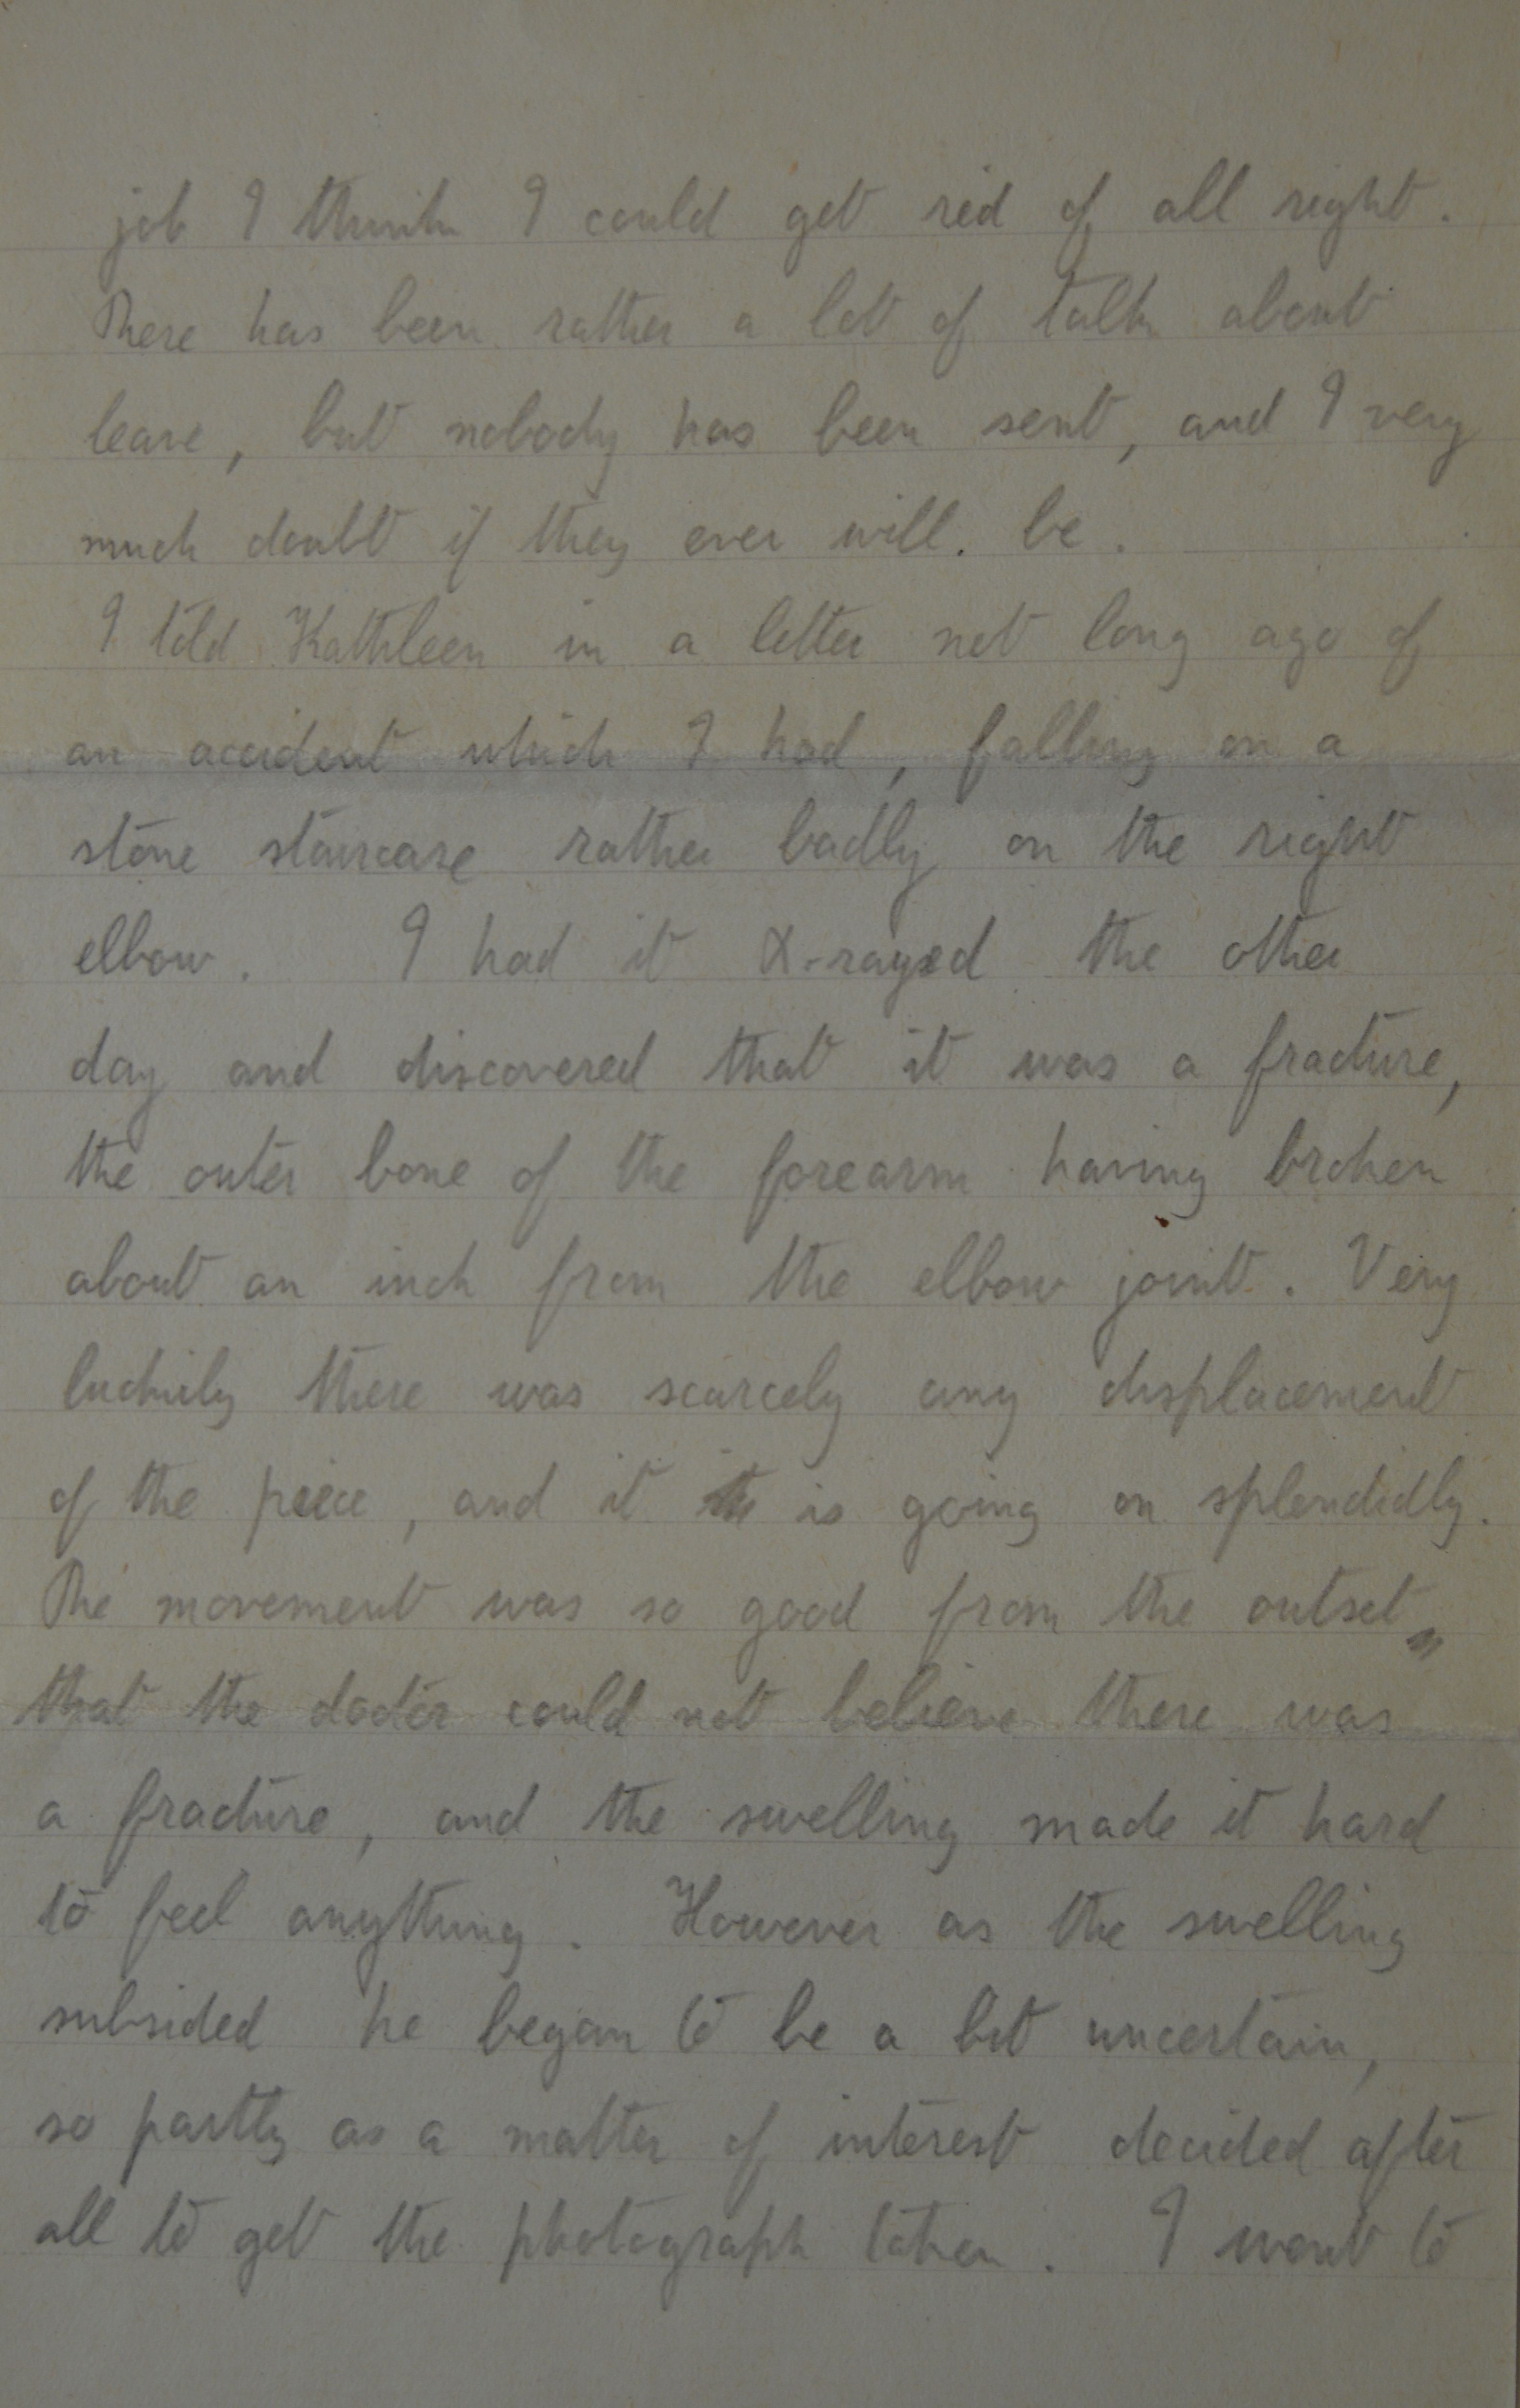 job I think I could get rid of all right.
There has been rather a lot of talk about
leave, but nobody has been sent, and I very
much doubt if they ever will. be.
I told Kathleen in a letter not long ago of
an accident which I had, falling on a
stone staircase rather badly on the right
elbow. I had it X-rayed the other
day and discovered that it was a fracture,
the outer bone of the forearm having broken
about an inch from the elbow joint. Very
luckily there was scarcely any displacement
of the piece, and it is going on splendidly.
The movement was so good from the outset
that the doctor could not believe there was
a fracture, and the swelling made it hard
to feel anything. However as the swelling
subsided he began to be a bit uncertain,
so partly as a matter of interest decided after
all to get the photograph taken. I went to